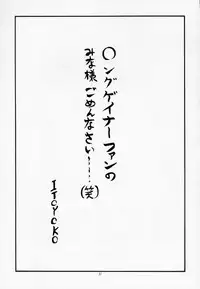 〇ングゲイナーファンの
みな様ごめんなさい〜……
(笑)
ITOYOKO